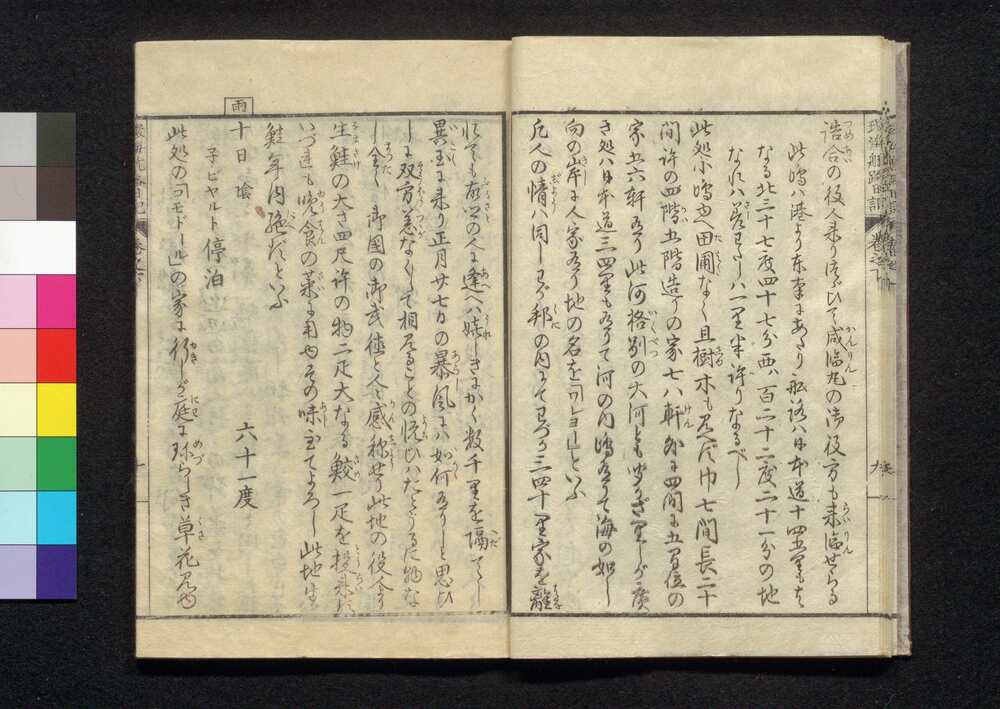 詰合の役人来り次ひて咸臨丸の御役方も来臨せらる
此嶋ハ港より東南にあたり船路ハ日本道十四五里もはなる北三十七度四十七分西八百二十二度二十一分の地
なれハ差わたし八一里半許りなるべし
此処小嶋ゆへ田圃なく且樹木も見へず巾七間長二十
間許の四階五階造りの家七八軒外に四間に五間位の
家五六軒あり此河格別の大河とも聞かざりしが広
き処ハ日本道三四里もありて河の内嶋ありて海の如し
向の岸に人家あり地の名を
といふ
凡人の情ハ同じわが邦の内にてわづか三四十里家を離
れても存かの人に逢へハ嬉しきにかく数千里を隔てし
異国に来り正月廿七日の暴風にハ如何ありしと思ひ
しに双方恙なくして相見ることの悦びハたとうるに物な
し全く御国の御武徳と人々感称せり此地の役人より
生鮭の大さ四尺許の物二疋大なる鮫一疋を投来れり
いづれも晩食の菜に用ゆその味至てよろし此地生
鮭年内絶ずといふ
雨
十日 陰 六十一度
子ビヤルト 停泊
此処の「コモドール」の家に行しが庭に珍らしき草花見ゆ